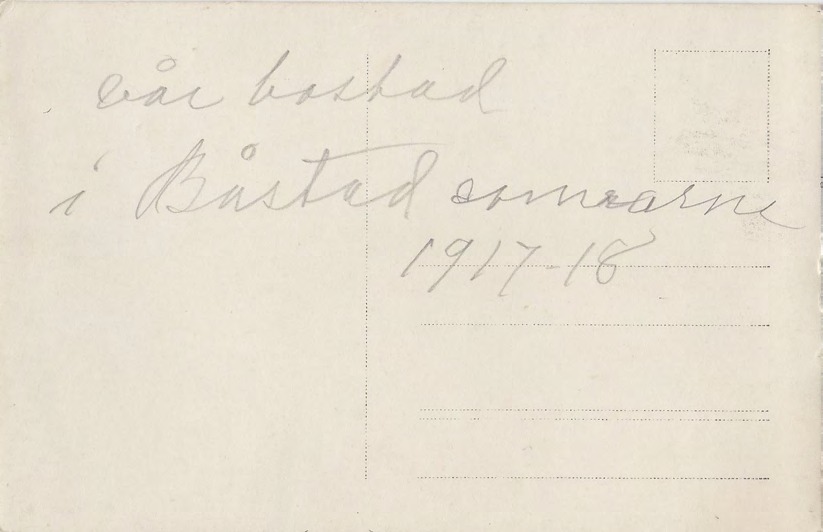 vår bostad
i Båstad somrarne
1917-18